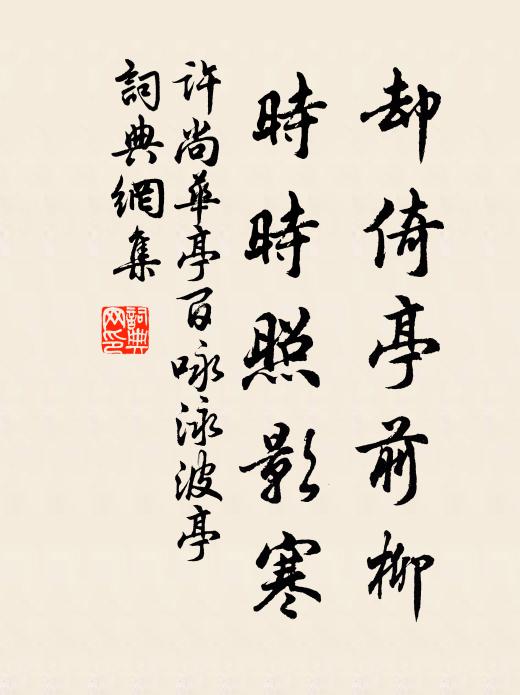 却倚亭前柳
時時照影寒
許尚華亭百咏泳波亭
詞典網集
詞典网印